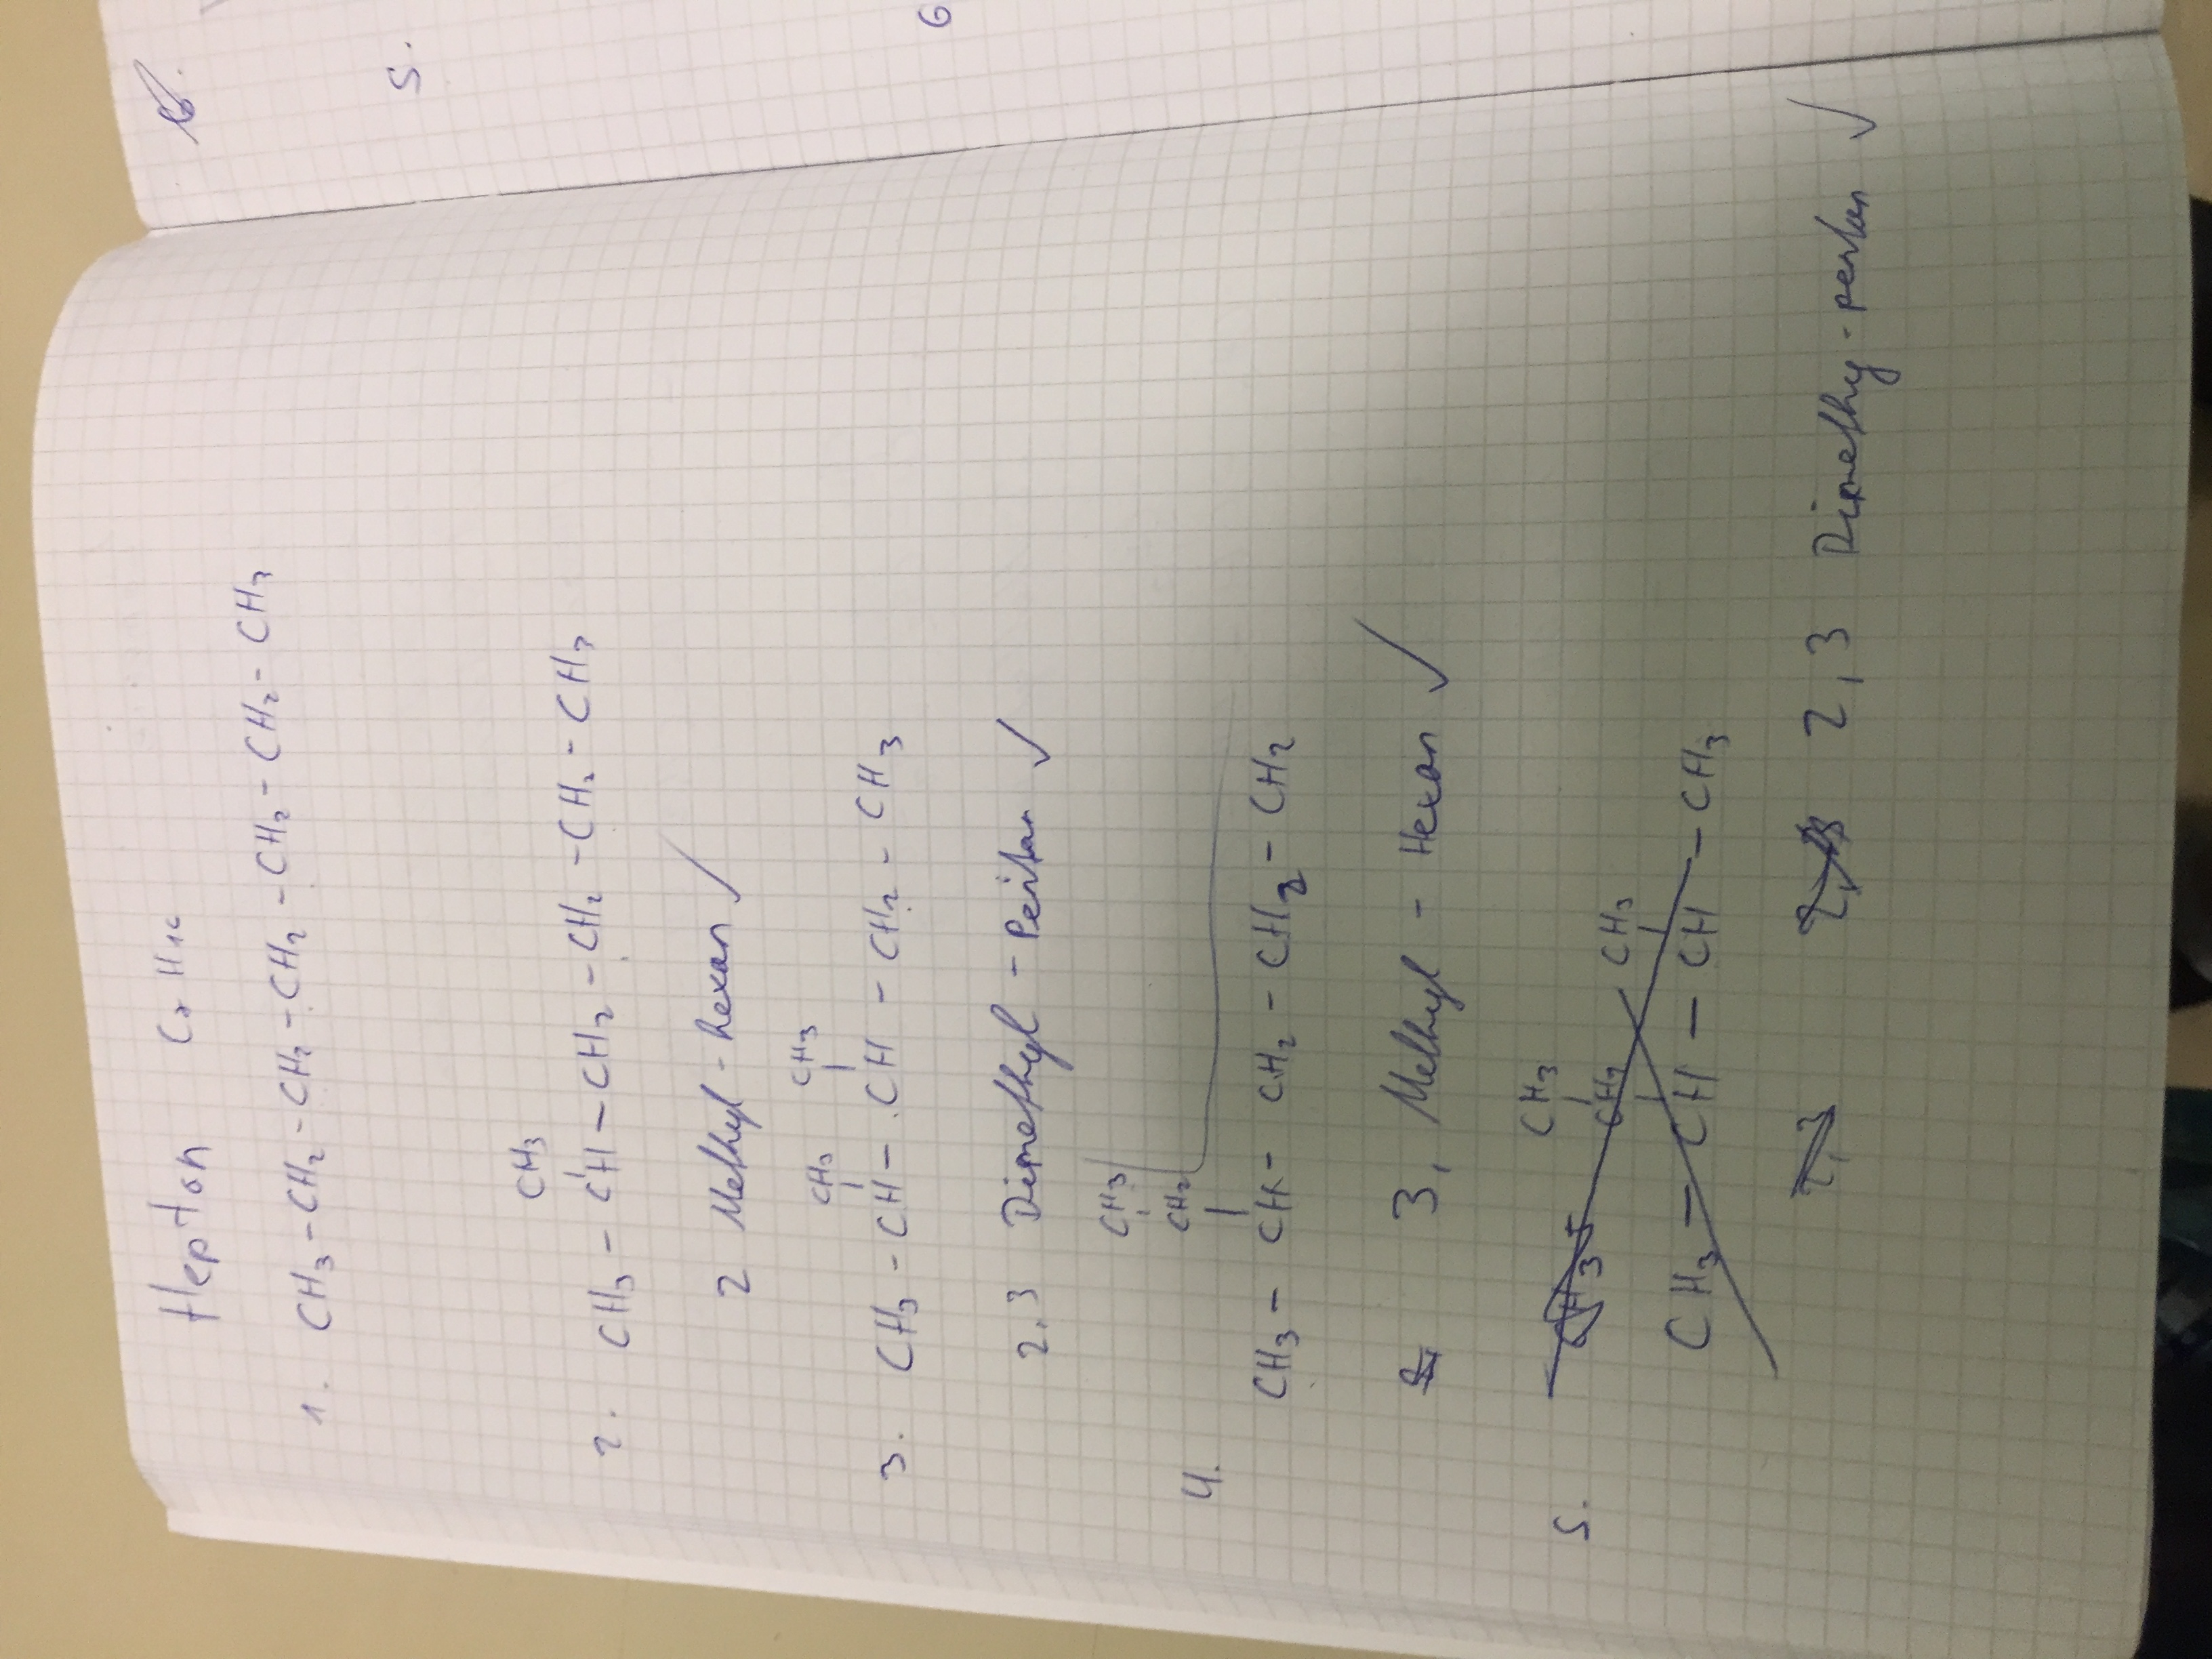 Heptan C₇H₁₆
1. CH₃ - CH₂ - CH₂ - CH₂ - CH₂ - CH₂ - CH₃
CH₃
2. CH₃ - CH - CH₂ - CH₂ - CH₂ - CH₃
2 Methyl - hexan ✓
CH₃ CH₃
3. CH₃ - CH - CH - CH₂ - CH₃
2,3 Dimethyl - Pentan ✓
CH₃
CH₂
4.
CH₃ - CH - CH₂ - CH₂ - CH₂
3, Methyl - Hexan ✓
CH₃
5. CH₃ -
CH₂ CH₃
CH₃ - CH - CH - CH₃
2,3 2,3 Dimethy - pentan ✓
6.
5.
6